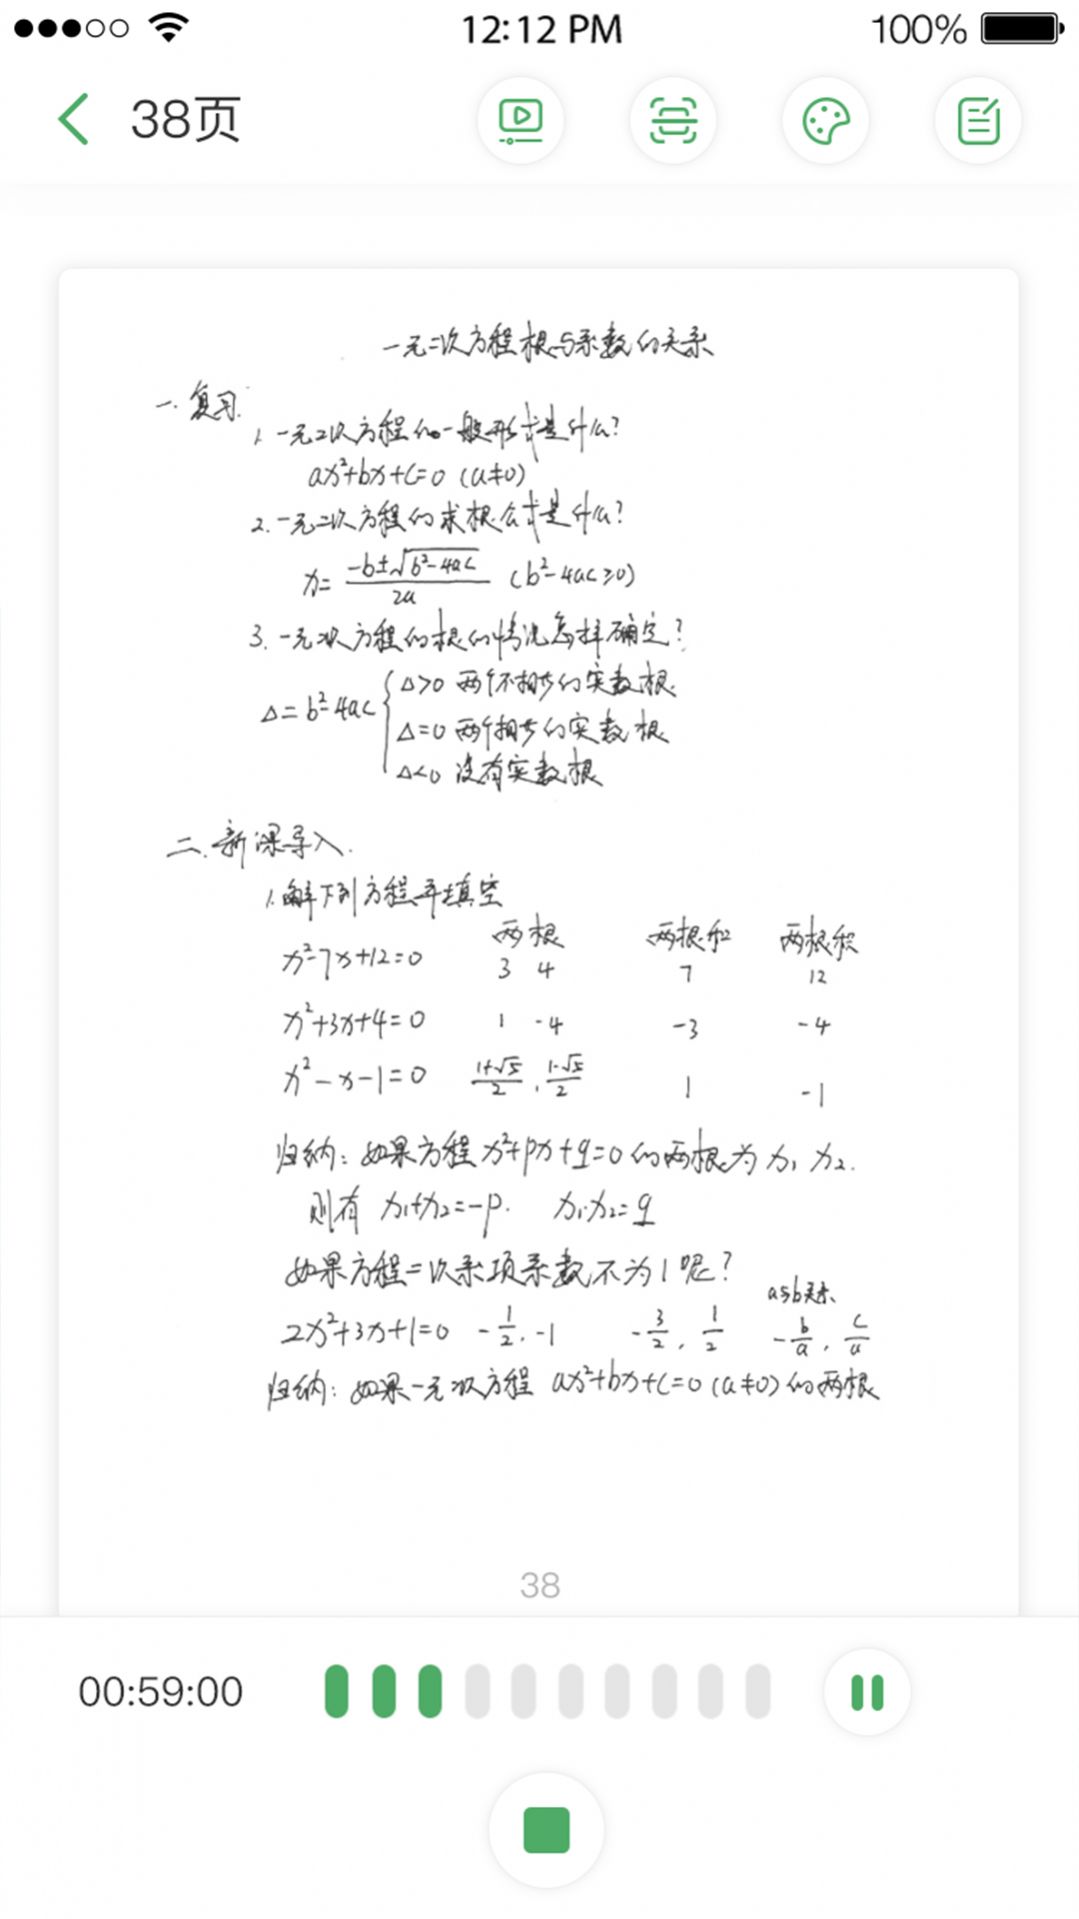 12:12 PM 100%
38页
一元二次方程根与系数的关系
一.复习.
1.一元二次方程的一般形式是什么?
ax²+bx+c=0 (a≠0)
2.一元二次方程的求根公式是什么?
x=(-b±√(b²-4ac))/2a (b²-4ac≥0)
3.一元二次方程的根的情况怎样确定?
Δ=b²-4ac
Δ>0 两个不相等的实数根.
Δ=0 两个相等的实数根
Δ<0 没有实数根
二.新课导入.
1.解下列方程并填空
两根 两根和 两根积
x²-7x+12=0 3 4 7 12
x²+3x+4=0 1 -4 -3 -4
x²-x-1=0 (1+√5)/2,(1-√5)/2 1 -1
归纳:如果方程x²+px+q=0的两根为x₁ x₂.
则有 x₁+x₂=-p. x₁·x₂=q
如果方程二次系项系数不为1呢?
a与b关系
2x²+3x+1=0 -1/2,-1 -3/2,1/2 -b/a,c/a
归纳:如果一元二次方程 ax²+bx+c=0(a≠0)的两根
38
00:59:00